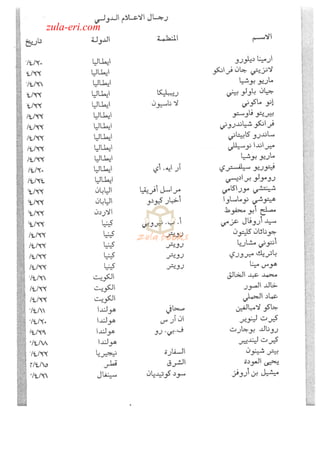 رجال الاعلام الدولي
zula-eri.com
الاسم المنظمة الدولة تاريخ
ارمينا ديلورو ايطاليا ٢٠/٤/
لانزيتي جان فرانكو ايطاليا ٤/٢٢
ماريو بوشيا ايطاليا ٤/٢٢/
جيان باولو بيني ريبيليكا ايطاليا ٤/٢٢/
إنو ماكوني لا ناسيون ايطاليا ٤/٢٢
بيريتو فاوستو ايطاليا ٤/٢٢/
فرانكو شياندروني ايطاليا ٤/٢٢/
ساندرو كابيتاني ايطاليا ٤/٢٢/
ميراندا نوسيللي ايطاليا ٤/٢٢/
ماريو بوشيا ايطاليا ٤/٢٢/
فيتوريو سيلفستري أر ايه. أي ايطاليا ٤/٢٠/
رومولو براديسي ايطاليا ٤/٢٤/
شينتشي موراكامي مراسل أفريقيا اليابان ٤/٢١/
هيتوشي نوماساوا أخبار كيودو اليابان ٤/٢١/
مصلح أبو محفوظ الاردن ٤/٢٢
سيد أزوقال عزمي أ. ب. نيروبي كينيا ٤/٢٢/
جوناثان كليتون رويتر كينيا ٤/٢٢/
أنتوني مشاريا رويتر كينيا ٤/٢٢/
باتريك ميروري رويتر كينيا ٤/٢٢/
هوس مينا رويتر كينيا ٤/٢٢/
محمد عبد الخالق الكويت ٤/٢١/
خالد الصور الكويت ٤/٢٢/
عماد الجملي الكويت ٤/٢٢/
جاكو لامبالفين صحافي هولندا ٤/١١/
كيرت لينوير ان أر س هولندا ٤/٢٠/
رونالد بوجارت ف.بي. رو هولندا ٤/٢٦/
كيرت ليندبير هولندا ٤/١٨/
بيتر شينون السفارة نيجيريا ٤/٢٢/
يحيى العودة الشرق قطر
ميشيل بن أروفز سود كوتيديان سينغال ٤/٢٦/